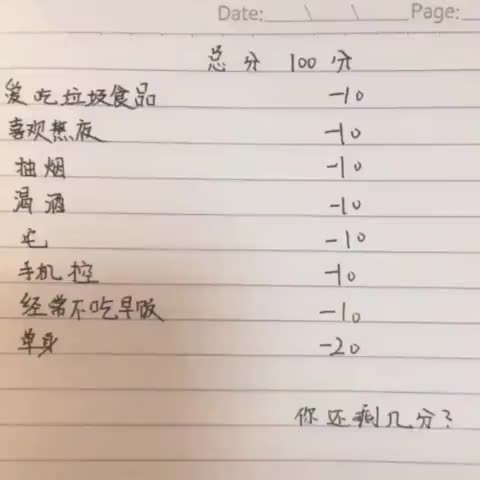 Date: \ \ Page:
总分 100分
爱吃垃圾食品 -10
喜欢熬夜 -10
抽烟 -10
喝酒 -10
宅 -10
手机控 -10
经常不吃早饭 -10
单身 -20
你还剩几分?